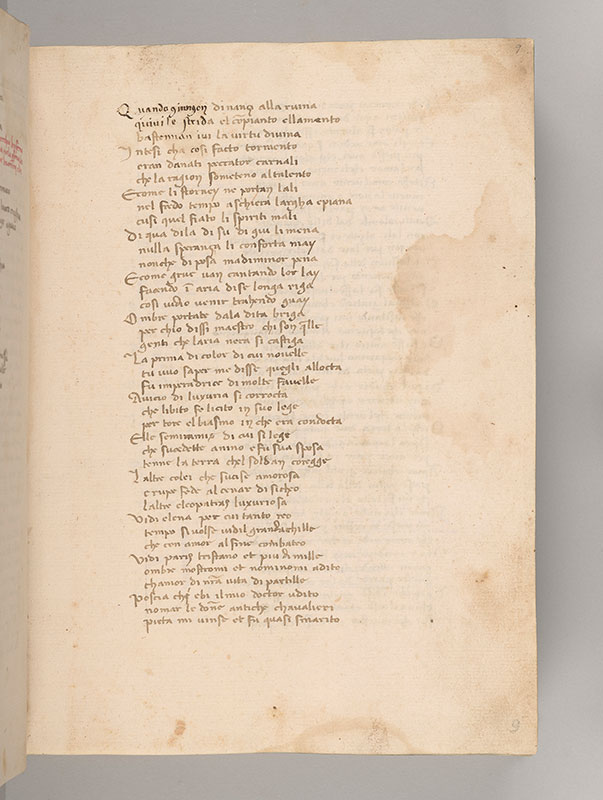 Quando giongon dinanz alla ruina
quivi se strida el conpianto ellamento
bastemian ivi la virtu divina
Intesi cha cosi facto tormento
eran danati peccator carnali
che la ragion someteno al talento
Ecome li storney ne portan lali
nel fredo tempo a schiera largha epiana
cusi quel fiato li spiriti mali
Di qua di la di su di giu li mena
nulla speranza li conforta may
nonche di posa madiminor pena
Ecome grue van cantando lor lay
faciendo i aria di se longa riga
cosi vidio venir trahendo guay
Ombre portate dala dita briga
per chio dissi maestro chi son qlle
genti che laria nera si castiga
La prima di color di cui novelle
tu vuo saper me disse quegli allocta
fu imperadrice di molte favelle
Avicio di luxuria si corrocta
che libito fe licito in suo lege
per tore el biasmo in che era condocta
Elle semiramis di cui si lege
che sucedette a nino e fu sua sposa
tenne la terra chel soldan coregge
Laltre colei che sucise amorosa
e rupe fede al cenar di sicheo
laltre cleopatras luxuriosa
Vidi elena per cui tanto reo
tempo si volse vidil grandachille
che con amor al fine combateo
Vidi paris tristano et piu di mille
ombre mostromi et nominomi adito
chamor di nra vita di partille
Poscia chi ebi il mio doctor udito
nomar le done antiche chavalieri
pieta mi vinse et fu quasi smarito
9